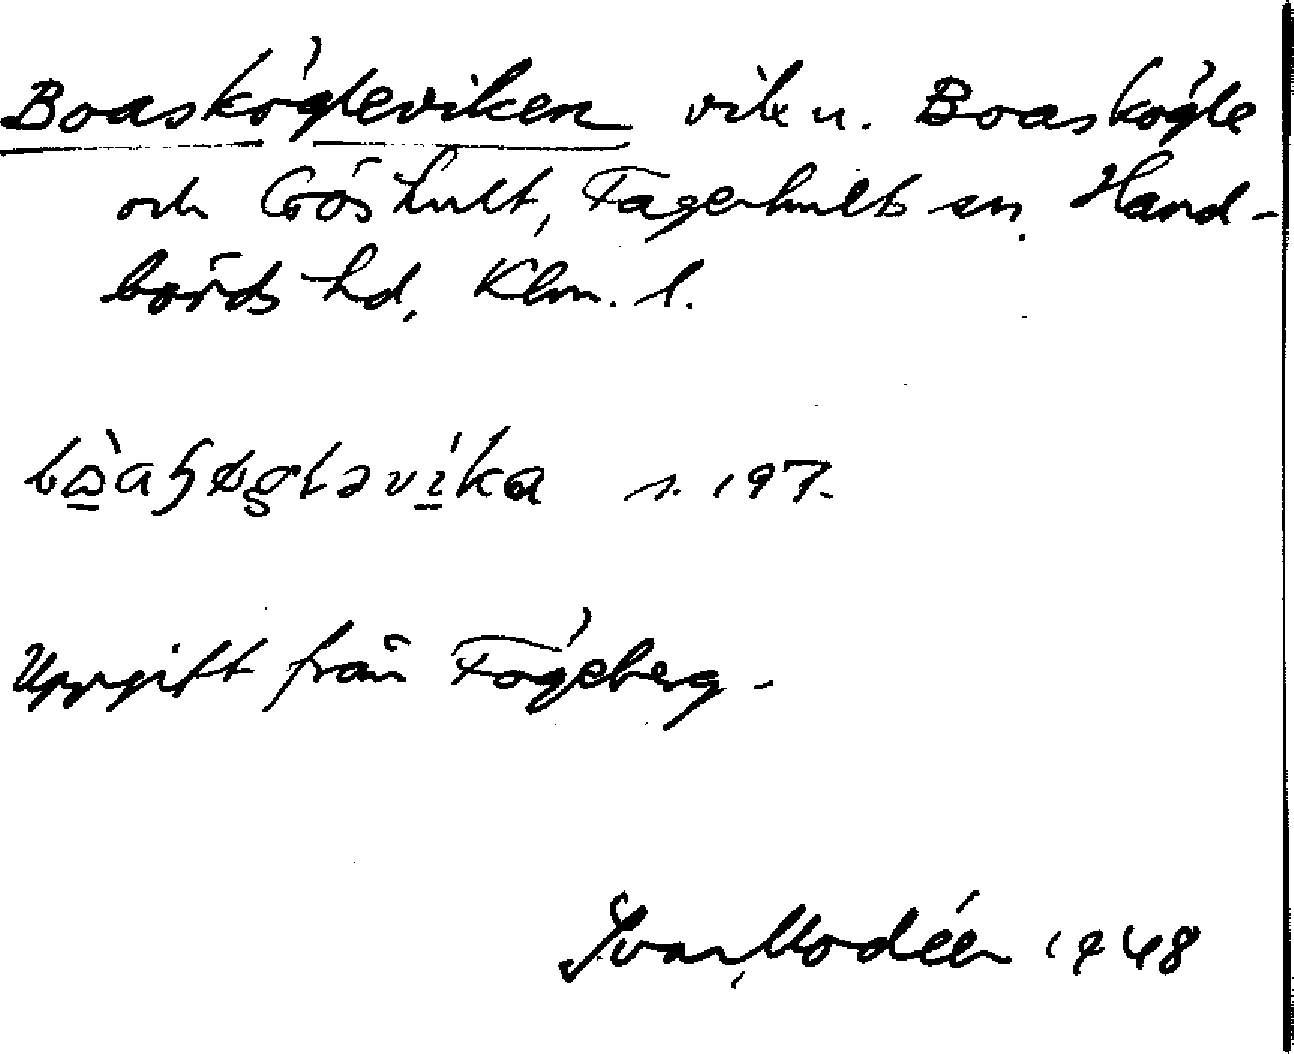 Boaskögleviken vik u. Boaskögle
och Göshult, Fagerhults sn. Hand-
börds hd, Klm. l.
s. 197.
Uppgift från Fågeberg.
Ivar Modéer 1948